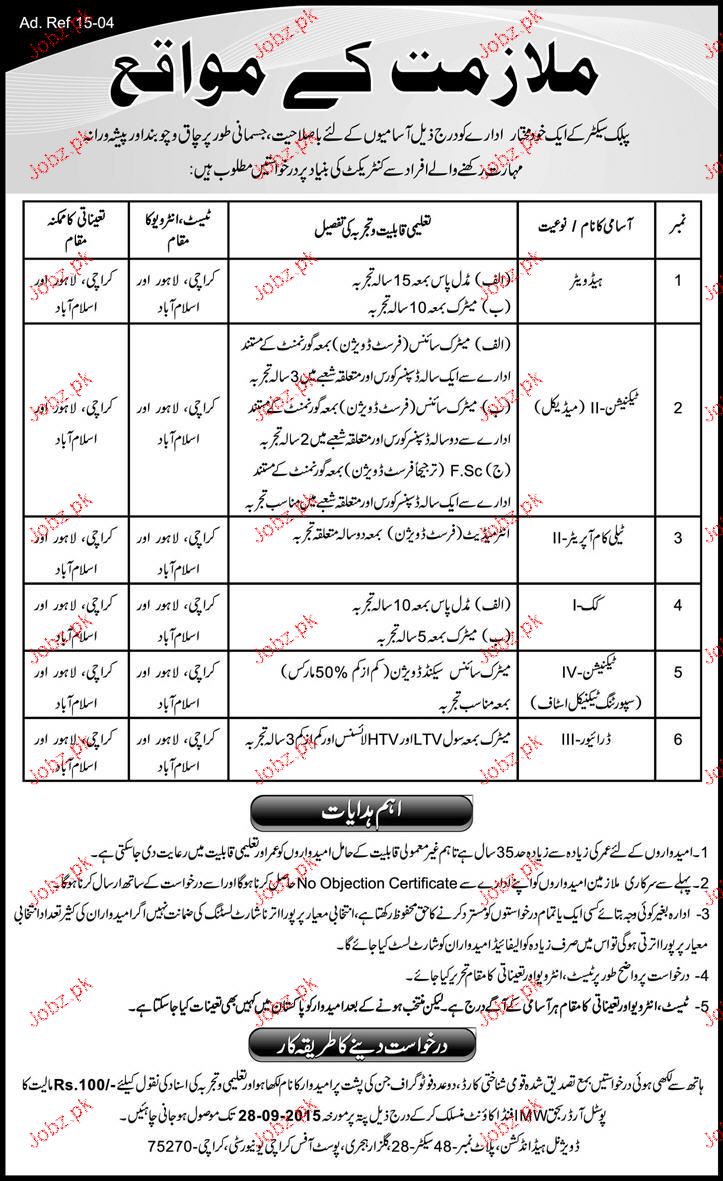 Ad. Ref 15-04
ملازمت کے مواقع
پبلک سیکٹر کے ایک خود مختار ادارے کو درج ذیل آسامیوں کے لئے باصلاحیت، جسمانی طور پر چاق و چوبند اور پیشہ ورانہ
مہارت رکھنے والے افراد سے کنٹریکٹ کی بنیاد پر درخواستیں مطلوب ہیں:
نمبر آسامی کا نام / نوعیت تعلیمی قابلیت و تجربہ کی تفصیل ٹیسٹ، انٹرویو کا مقام تعیناتی کا ممکنہ مقام
1 ہیڈ ویٹر (الف) مڈل پاس بمعہ 15 سالہ تجربہ کراچی، لاہور اور کراچی، لاہور اور
(ب) میٹرک بمعہ 10 سالہ تجربہ اسلام آباد اسلام آباد
(الف) میٹرک سائنس (فرسٹ ڈویژن) بمعہ گورنمنٹ کے مستند
ادارے سے ایک سالہ ڈسپنسر کورس اور متعلقہ شعبے میں 3 سالہ تجربہ
2 ٹیکنیشن-II (میڈیکل) (ب) میٹرک سائنس (فرسٹ ڈویژن) بمعہ گورنمنٹ کے مستند کراچی، لاہور اور کراچی، لاہور اور
ادارے سے دو سالہ ڈسپنسر کورس اور متعلقہ شعبے میں 2 سالہ تجربہ اسلام آباد اسلام آباد
(ج) F.Sc (ترجیحاً فرسٹ ڈویژن) بمعہ گورنمنٹ کے مستند
ادارے سے ایک سالہ ڈسپنسر کورس اور متعلقہ شعبے میں مناسب تجربہ
3 ٹیلی کام آپریٹر-II انٹرمیڈیٹ (فرسٹ ڈویژن) بمعہ دو سالہ متعلقہ تجربہ کراچی، لاہور اور کراچی، لاہور اور
اسلام آباد اسلام آباد
4 کک-I (الف) مڈل پاس بمعہ 10 سالہ تجربہ کراچی، لاہور اور کراچی، لاہور اور
(ب) میٹرک بمعہ 5 سالہ تجربہ اسلام آباد اسلام آباد
5 ٹیکنیشن-IV میٹرک سائنس سیکنڈ ڈویژن (کم از کم 50% مارکس) کراچی، لاہور اور کراچی، لاہور اور
(سپورٹنگ ٹیکنیکل اسٹاف) بمعہ مناسب تجربہ اسلام آباد اسلام آباد
6 ڈرائیور-III میٹرک بمعہ سول LTV اور HTV لائسنس اور کم از کم 3 سالہ تجربہ کراچی، لاہور اور کراچی، لاہور اور
اسلام آباد اسلام آباد
اہم ہدایات
1۔ امیدواروں کے لئے عمر کی زیادہ سے زیادہ حد 35 سال ہے تاہم غیر معمولی قابلیت کے حامل امیدواروں کو عمر اور تعلیمی قابلیت میں رعایت دی جاسکتی ہے۔
2۔ پہلے سے سرکاری ملازمین امیدواروں کو اپنے ادارے سے No Objection Certificate حاصل کرنا ہوگا اور اسے درخواست کے ساتھ ارسال کرنا ہوگا۔
3- ادارہ بغیر کوئی وجہ بتائے کسی ایک یا تمام درخواستوں کو مسترد کرنے کا حق محفوظ رکھتا ہے، انتخابی معیار پر پورا اترنا شارٹ لسٹنگ کی ضمانت نہیں اگر امیدواران کی کثیر تعداد انتخابی
معیار پر پورا اترتی ہوگی تو اس میں صرف زیادہ کوالیفائیڈ امیدواران کو شارٹ لسٹ کیا جائے گا۔
4- درخواست پر واضح طور پر ٹیسٹ، انٹرویو اور تعیناتی کا مقام تحریر کیا جائے۔
5- ٹیسٹ، انٹرویو اور تعیناتی کا مقام ہر آسامی کے آگے درج ہے۔ لیکن منتخب ہونے کے بعد امیدوار کو پاکستان میں کہیں بھی تعینات کیا جاسکتا ہے۔
درخواست دینے کا طریقہ کار
ہاتھ سے لکھی ہوئی درخواستیں بمع تصدیق شدہ قومی شناختی کارڈ، دو عدد فوٹو گراف جن کی پشت پر امیدوار کا نام لکھا ہو اور تعلیمی و تجربہ کی اسناد کی نقول کیلئے Rs.100/- مالیت کا
پوسٹل آرڈر بحق IMW فنڈ اکاؤنٹ منسلک کر کے درج ذیل پتہ پر مورخہ 28-09-2015 تک موصول ہو جانی چاہئیں۔
ڈویژنل ہیڈ انڈکشن، پلاٹ نمبر-48 سیکٹر-28 گلزار ہجری، پوسٹ آفس کراچی یونیورسٹی، کراچی-75270